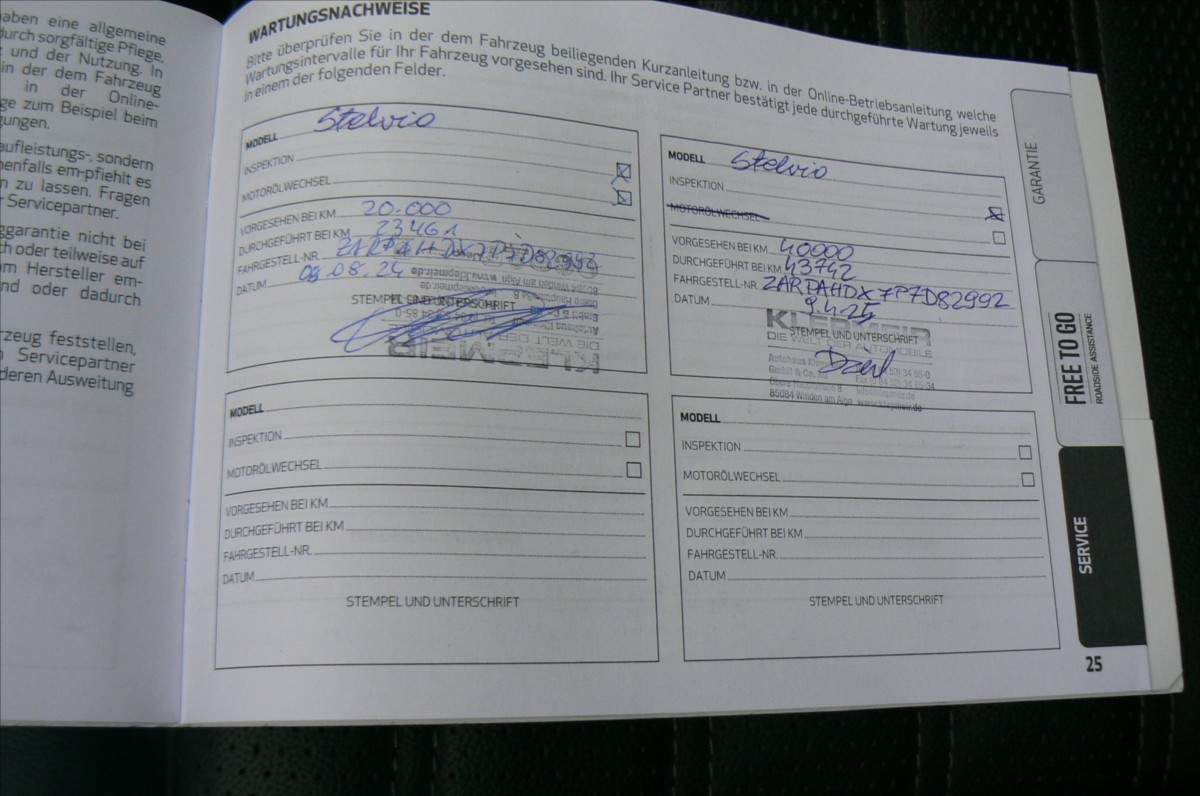 aben eine allgemeine
urch sorgfältige Pflege,
und der Nutzung. In
in der dem Fahrzeug
in der Online-
ge zum Beispiel beim
gungen.
aufleistungs-, sondern
enfalls em-pfiehlt es
n zu lassen. Fragen
Servicepartner.
ggarantie nicht bei
ch oder teilweise auf
m Hersteller em-
nd oder dadurch
rzeug feststellen,
Servicepartner
deren Ausweitung
WARTUNGSNACHWEISE
Bitte überprüfen Sie in der dem Fahrzeug beiliegenden Kurzanleitung bzw. in der Online-Betriebsanleitung welche
Wartungsintervalle für Ihr Fahrzeug vorgesehen sind. Ihr Service Partner bestätigt jede durchgeführte Wartung jeweils
in einem der folgenden Felder.
MODELL Stelvio
INSPEKTION
MOTORÖLWECHSEL
VORGESEHEN BEI KM 20.000
DURCHGEFÜHRT BEI KM 23461
FAHRGESTELL-NR. ZARPAHDX7P7D82992
DATUM 08.08.24
STEMPEL UND UNTERSCHRIFT
KLEPMEIR
DIE WELT DER
MODELL Stelvio
INSPEKTION
MOTORÖLWECHSEL
VORGESEHEN BEI KM 40000
DURCHGEFÜHRT BEI KM 43742
FAHRGESTELL-NR. ZARPAHDX7P7D82992
DATUM 9.4.25
KLEPMEIR
STEMPEL UND UNTERSCHRIFT
DIE WELT DER AUTOMOBILE
Autohaus
GmbH & Co.
85084 Winden am Aign www.klepmeir.de
MODELL
INSPEKTION
MOTORÖLWECHSEL
VORGESEHEN BEI KM
DURCHGEFÜHRT BEI KM
FAHRGESTELL-NR.
DATUM
STEMPEL UND UNTERSCHRIFT
MODELL
INSPEKTION
MOTORÖLWECHSEL
VORGESEHEN BEI KM
DURCHGEFÜHRT BEI KM
FAHRGESTELL-NR.
DATUM
STEMPEL UND UNTERSCHRIFT
GARANTIE
FREE TO GO
ROADSIDE ASSISTANCE
SERVICE
25